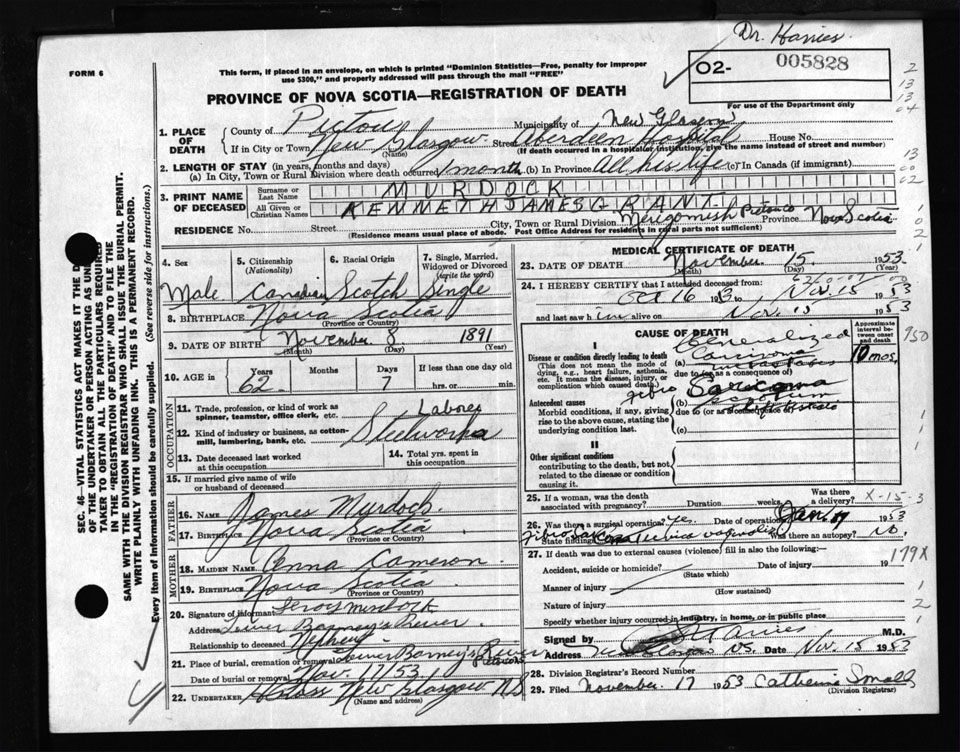 Dr. Harries
FORM 6
This form, if placed in an envelope, on which is printed "Dominion Statistics—Free, penalty for improper
use $300," and properly addressed will pass through the mail "FREE"
02- 005828
For use of the Department only
PROVINCE OF NOVA SCOTIA—REGISTRATION OF DEATH
1. PLACE OF DEATH
County of Pictou Municipality of New Glasgow
If in City or Town New Glasgow Street Aberdeen Hospital House No.
(Name) (If death occurred in a hospital or institution, give the name instead of street and number)
2. LENGTH OF STAY (in years, months and days)
(a) In City, Town or Rural Division where death occurred 1 month (b) In Province All his life (c) In Canada (if immigrant)
3. PRINT NAME OF DECEASED
Surname or Last Name MURDOCK
All Given or Christian Names KENNETH JAMES GRANT
RESIDENCE No. Street City, Town or Rural Division Merigomish Pictou Co Province Nova Scotia
(Residence means usual place of abode. Post Office Address for residents in rural parts not sufficient)
4. Sex Male
5. Citizenship (Nationality) Canadian
6. Racial Origin Scotch
7. Single, Married, Widowed or Divorced (write the word) Single
8. BIRTHPLACE Nova Scotia
(Province or Country)
9. DATE OF BIRTH November 8 1891
(Month) (Day) (Year)
10. AGE Years 62 Months Days 7 If less than one day old
hrs. or min.
OCCUPATION
11. Trade, profession, or kind of work as spinner, teamster, office clerk, etc. Laborer
12. Kind of industry or business, as cotton-mill, lumbering, bank, etc. Steelworks
13. Date deceased last worked at this occupation
14. Total yrs. spent in this occupation
15. If married give name of wife or husband of deceased
FATHER
16. NAME James Murdock
17. BIRTHPLACE Nova Scotia
(Province or Country)
MOTHER
18. MAIDEN NAME Anna Cameron
19. BIRTHPLACE Nova Scotia
(Province or Country)
20. Signature of informant Leroy Murdock
Address Lower Barney's River
Relationship to deceased Nephew
21. Place of burial, cremation or removal Lower Barney's River Pictou Co
Date of burial or removal Nov. 17/53
22. UNDERTAKER New Glasgow N.S
(Name and address)
MEDICAL CERTIFICATE OF DEATH
23. DATE OF DEATH November 15 1953
(Month) (Day) (Year)
24. I HEREBY CERTIFY that I attended deceased from:
Oct 16 1953 to Nov. 15 1953
and last saw him alive on Nov. 15 1953
CAUSE OF DEATH
Approximate interval between onset and death
I
Disease or condition directly leading to death
(This does not mean the mode of dying, e.g., heart failure, asthenia, etc. It means the disease, injury, or complication which caused death.)
Generalized
10 mos.
due to (or as a consequence of)
Antecedent causes
Morbid conditions, if any, giving rise to the above cause, stating the underlying condition last.
fibro Sarcoma
(b) scrotum
due to (or as a consequence of)
(c)
II
Other significant conditions
contributing to the death, but not related to the disease or condition causing it.
25. If a woman, was the death associated with pregnancy? Duration weeks. Was there a delivery?
26. Was there a surgical operation? Yes. Date of operation Jan. 19 1953
State findings Was there an autopsy? no.
27. If death was due to external causes (violence) fill in also the following:
Accident, suicide or homicide? Date of injury 19
(State which)
Manner of injury
(How sustained)
Nature of injury
Specify whether injury occurred in industry, in home, or in public place
Signed by M.D.
Address New Glasgow NS. Date Nov. 15 1953
28. Division Registrar's Record Number
29. Filed November 17 1953 Catherine Small
(Division Registrar)
950
X-15-3
179X
SEC. 46—VITAL STATISTICS ACT MAKES IT THE
OF THE UNDERTAKER OR PERSON ACTING AS UN
TAKER TO OBTAIN ALL THE PARTICULARS REQUIRED
IN THE "REGISTRATION OF DEATH" AND TO FILE THE
SAME WITH THE DIVISION REGISTRAR WHO SHALL ISSUE THE BURIAL PERMIT.
WRITE PLAINLY WITH UNFADING INK. THIS IS A PERMANENT RECORD.
Every item of information should be carefully supplied. (See reverse side for instructions.)